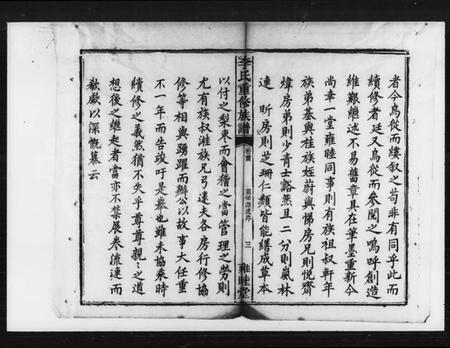 者今烏從而縷叙之苟非有同乎此而
續修者廷又烏從而參閱之嗚呼創造
維艱繼述不易譜章具在筆墨重新今
尚幸一堂雍睦同事則有族祖叔軒年
族弟基與桂族姪蔚與悌房兄則悦齋
煒房弟則少青士谿蒸且二分則嵐林
速 昕房則芝珊仁類皆能繕成草本
李氏重修族譜
卷首
三
雍睦堂
以付之梨棗而會稽之當管理之勞則
尤有族叔淮族兄弓速夫各房行修協
修等相與踴躍而辦公以故事大任重
不一年而告竣吁是舉也雖未協乘時
續修之義然猶不失乎尊尊親親之道
想後之繼起者當亦不禁展卷流連而
欷歔以深慨慕云